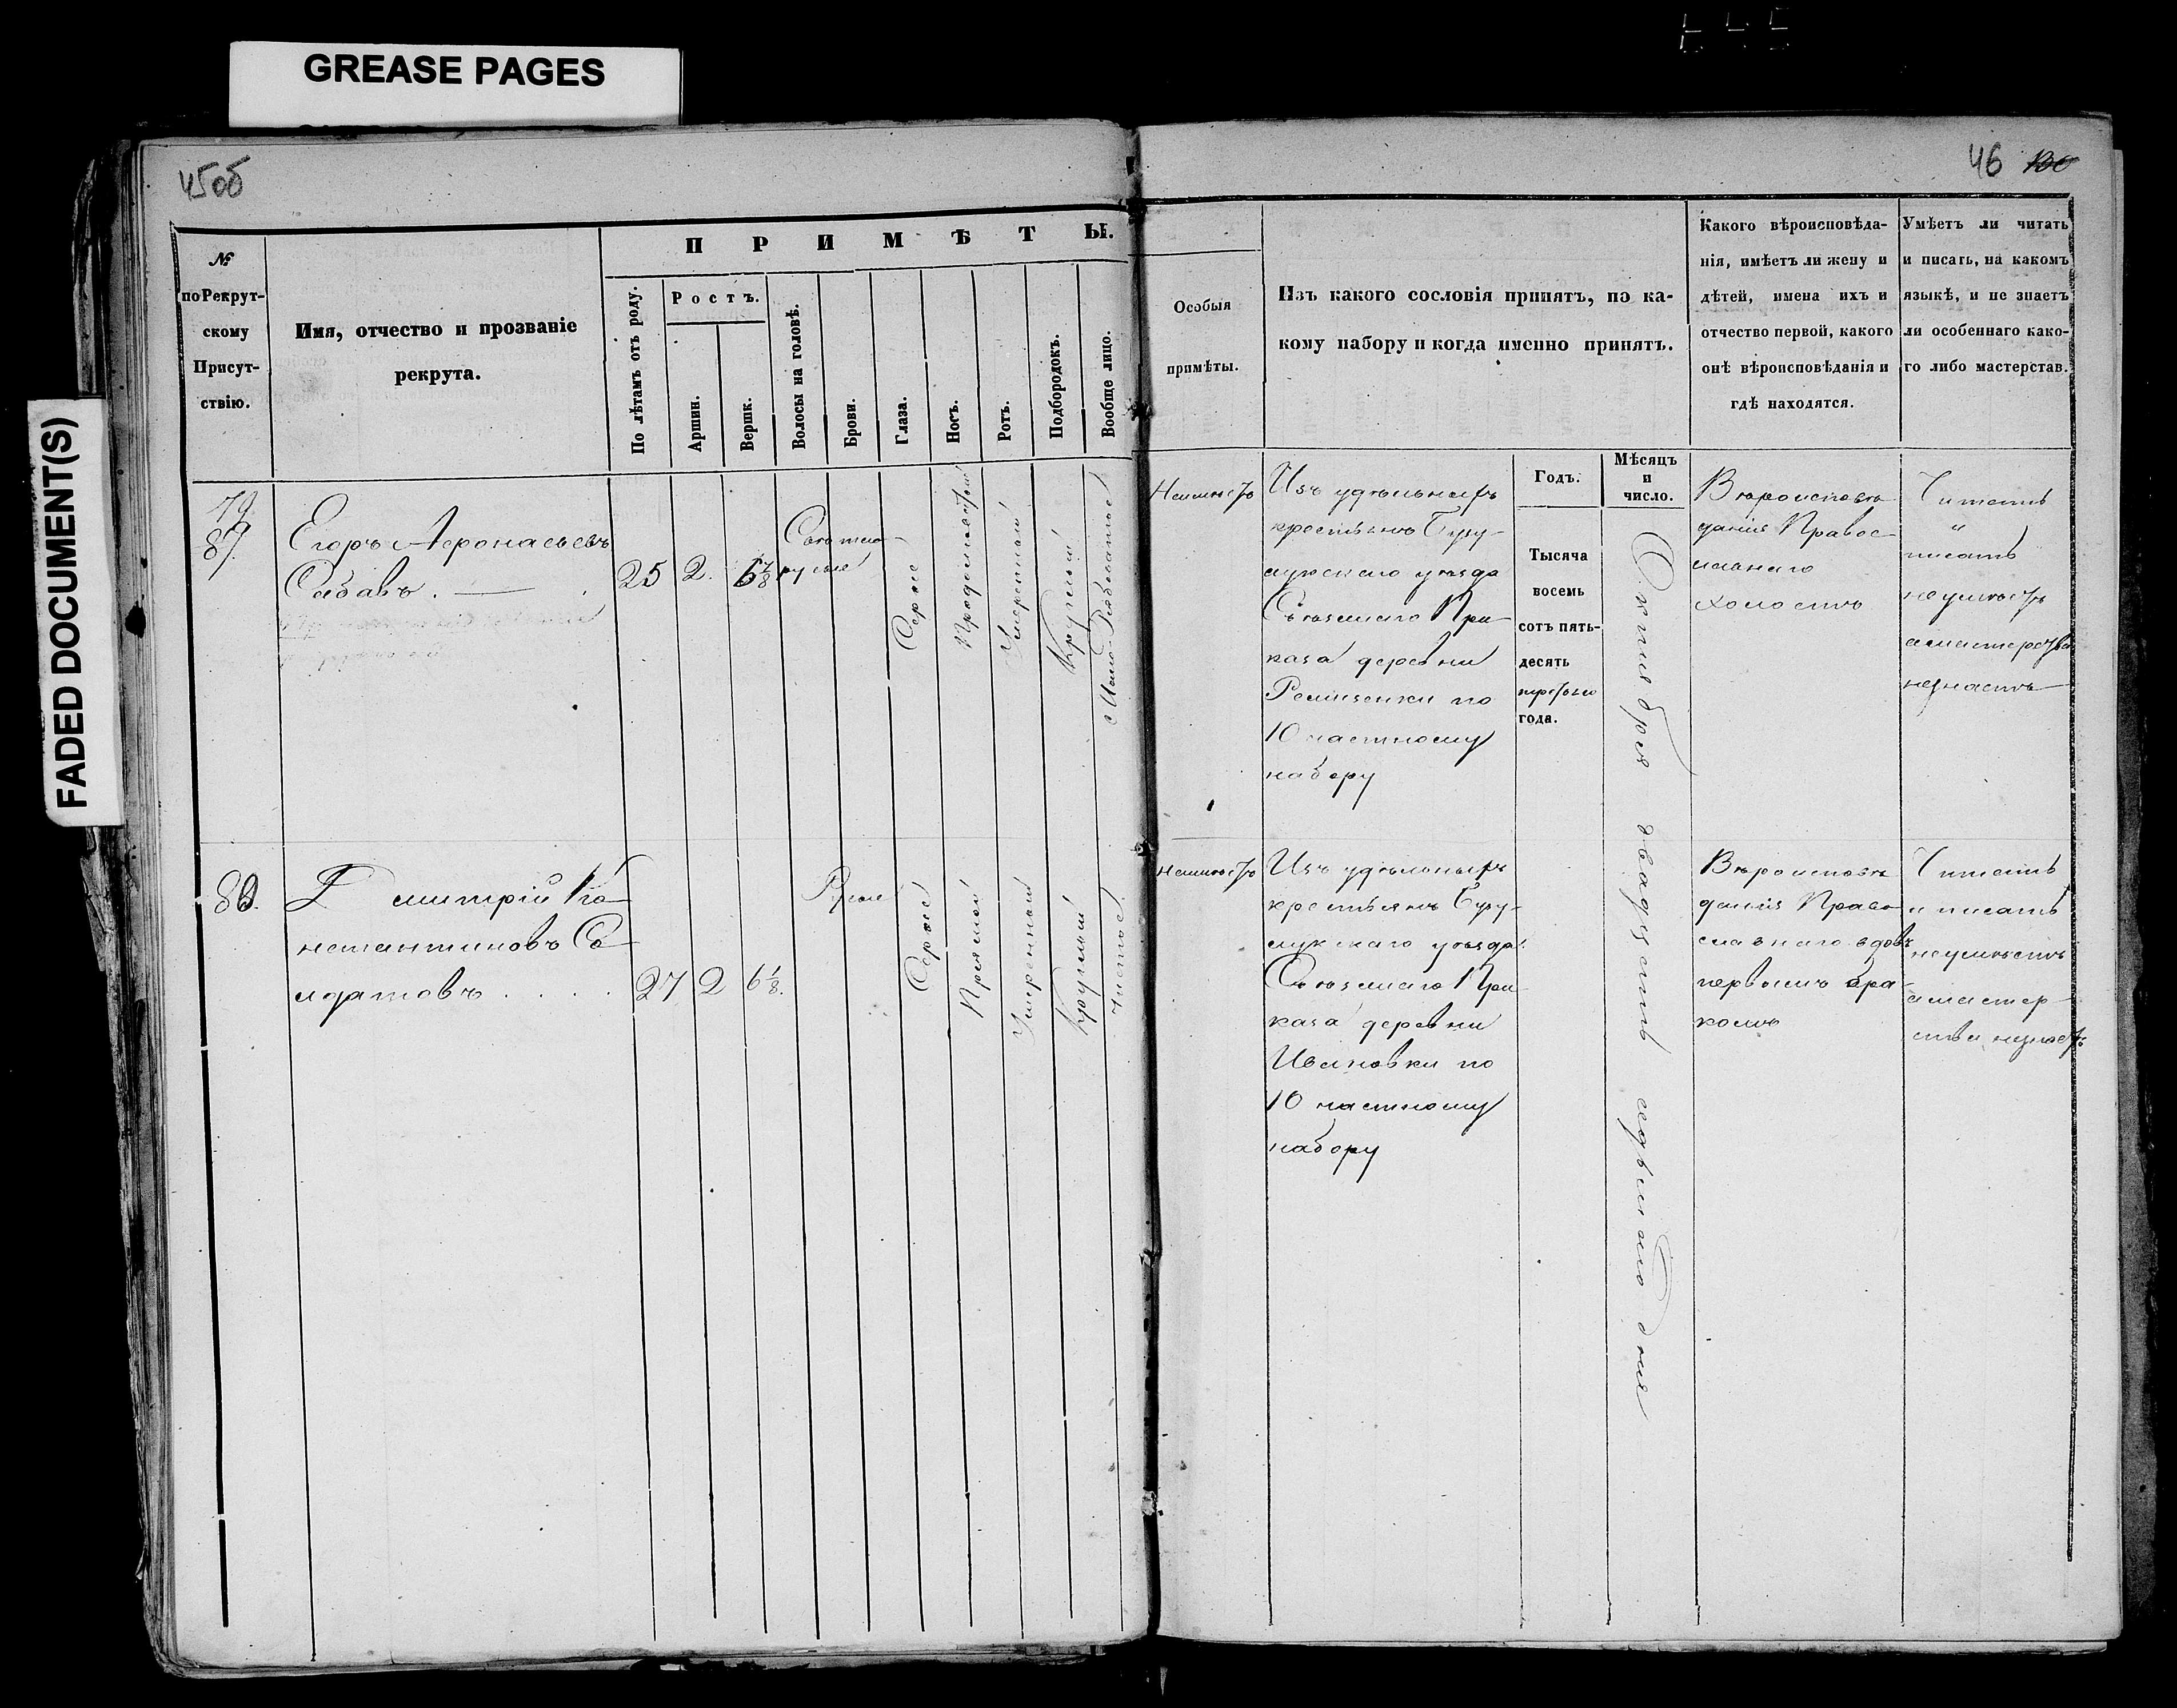 GREASE PAGES
FADED DOCUMENT(S)
45об
46
№
по Рекрут-
скому
Присут-
ствію.
Имя, отчество и прозваніе
рекрута.
ПРИМѢТЫ.
По лѣтамъ отъ роду.
Ростъ.
Аршин.
Вершк.
Волосы на головѣ.
Брови.
Глаза.
Носъ.
Ротъ.
Подбородокъ.
Вообще лицо.
Особыя
примѣты.
Изъ какого сословія принятъ, по ка-
кому набору и когда именно принятъ.
Какого вѣроисповѣда-
нія, имѣетъ ли жену и
дѣтей, имена ихъ и
отчество первой, какого
онѣ вѣроисповѣданія и
гдѣ находятся.
Умѣетъ ли читать
и писать, на какомъ
языкѣ, и не знаетъ
ли особеннаго како-
го либо мастерства.
Годъ.
Мѣсяцъ
и
число.
79.
87.
Егоръ Афонасьевъ
Сабавъ.
25
2.
6 1/8
Свѣтло-
русые
Серые
Продолговатый
Умеренный
Круглый
Мало-Рябоватое
Неимѣетъ
Изъ удѣльныхъ
крестьянъ Бузу-
лукскаго уѣзда
Съѣзжаго При-
каза деревни
по
10 частному
набору
Тысяча
восемь
сотъ пять-
десять
третьяго
года.
Октября двадцать седьмаго дня
Вѣроисповѣ
данія Правос-
лавнаго
холостъ
Читать
и
писать
неумѣетъ
а мастерства
незнаетъ
80.
Дмитрій Ко-
нстантиновъ Со-
лдатовъ . . . .
27
2
6 1/8.
Русые
Серые
Прямой
Умеренный
Круглый
Чистое
Неимѣетъ
Изъ удѣльныхъ
крестьянъ Бузу-
лукскаго уѣзда
Съѣзжаго При-
каза деревни
Ивановки по
10 частному
набору
Вѣроисповѣ
данія Право-
славнаго вдовъ
первымъ бра-
комъ
Читать
и писать
неумѣетъ
а мастер-
ства незнаетъ